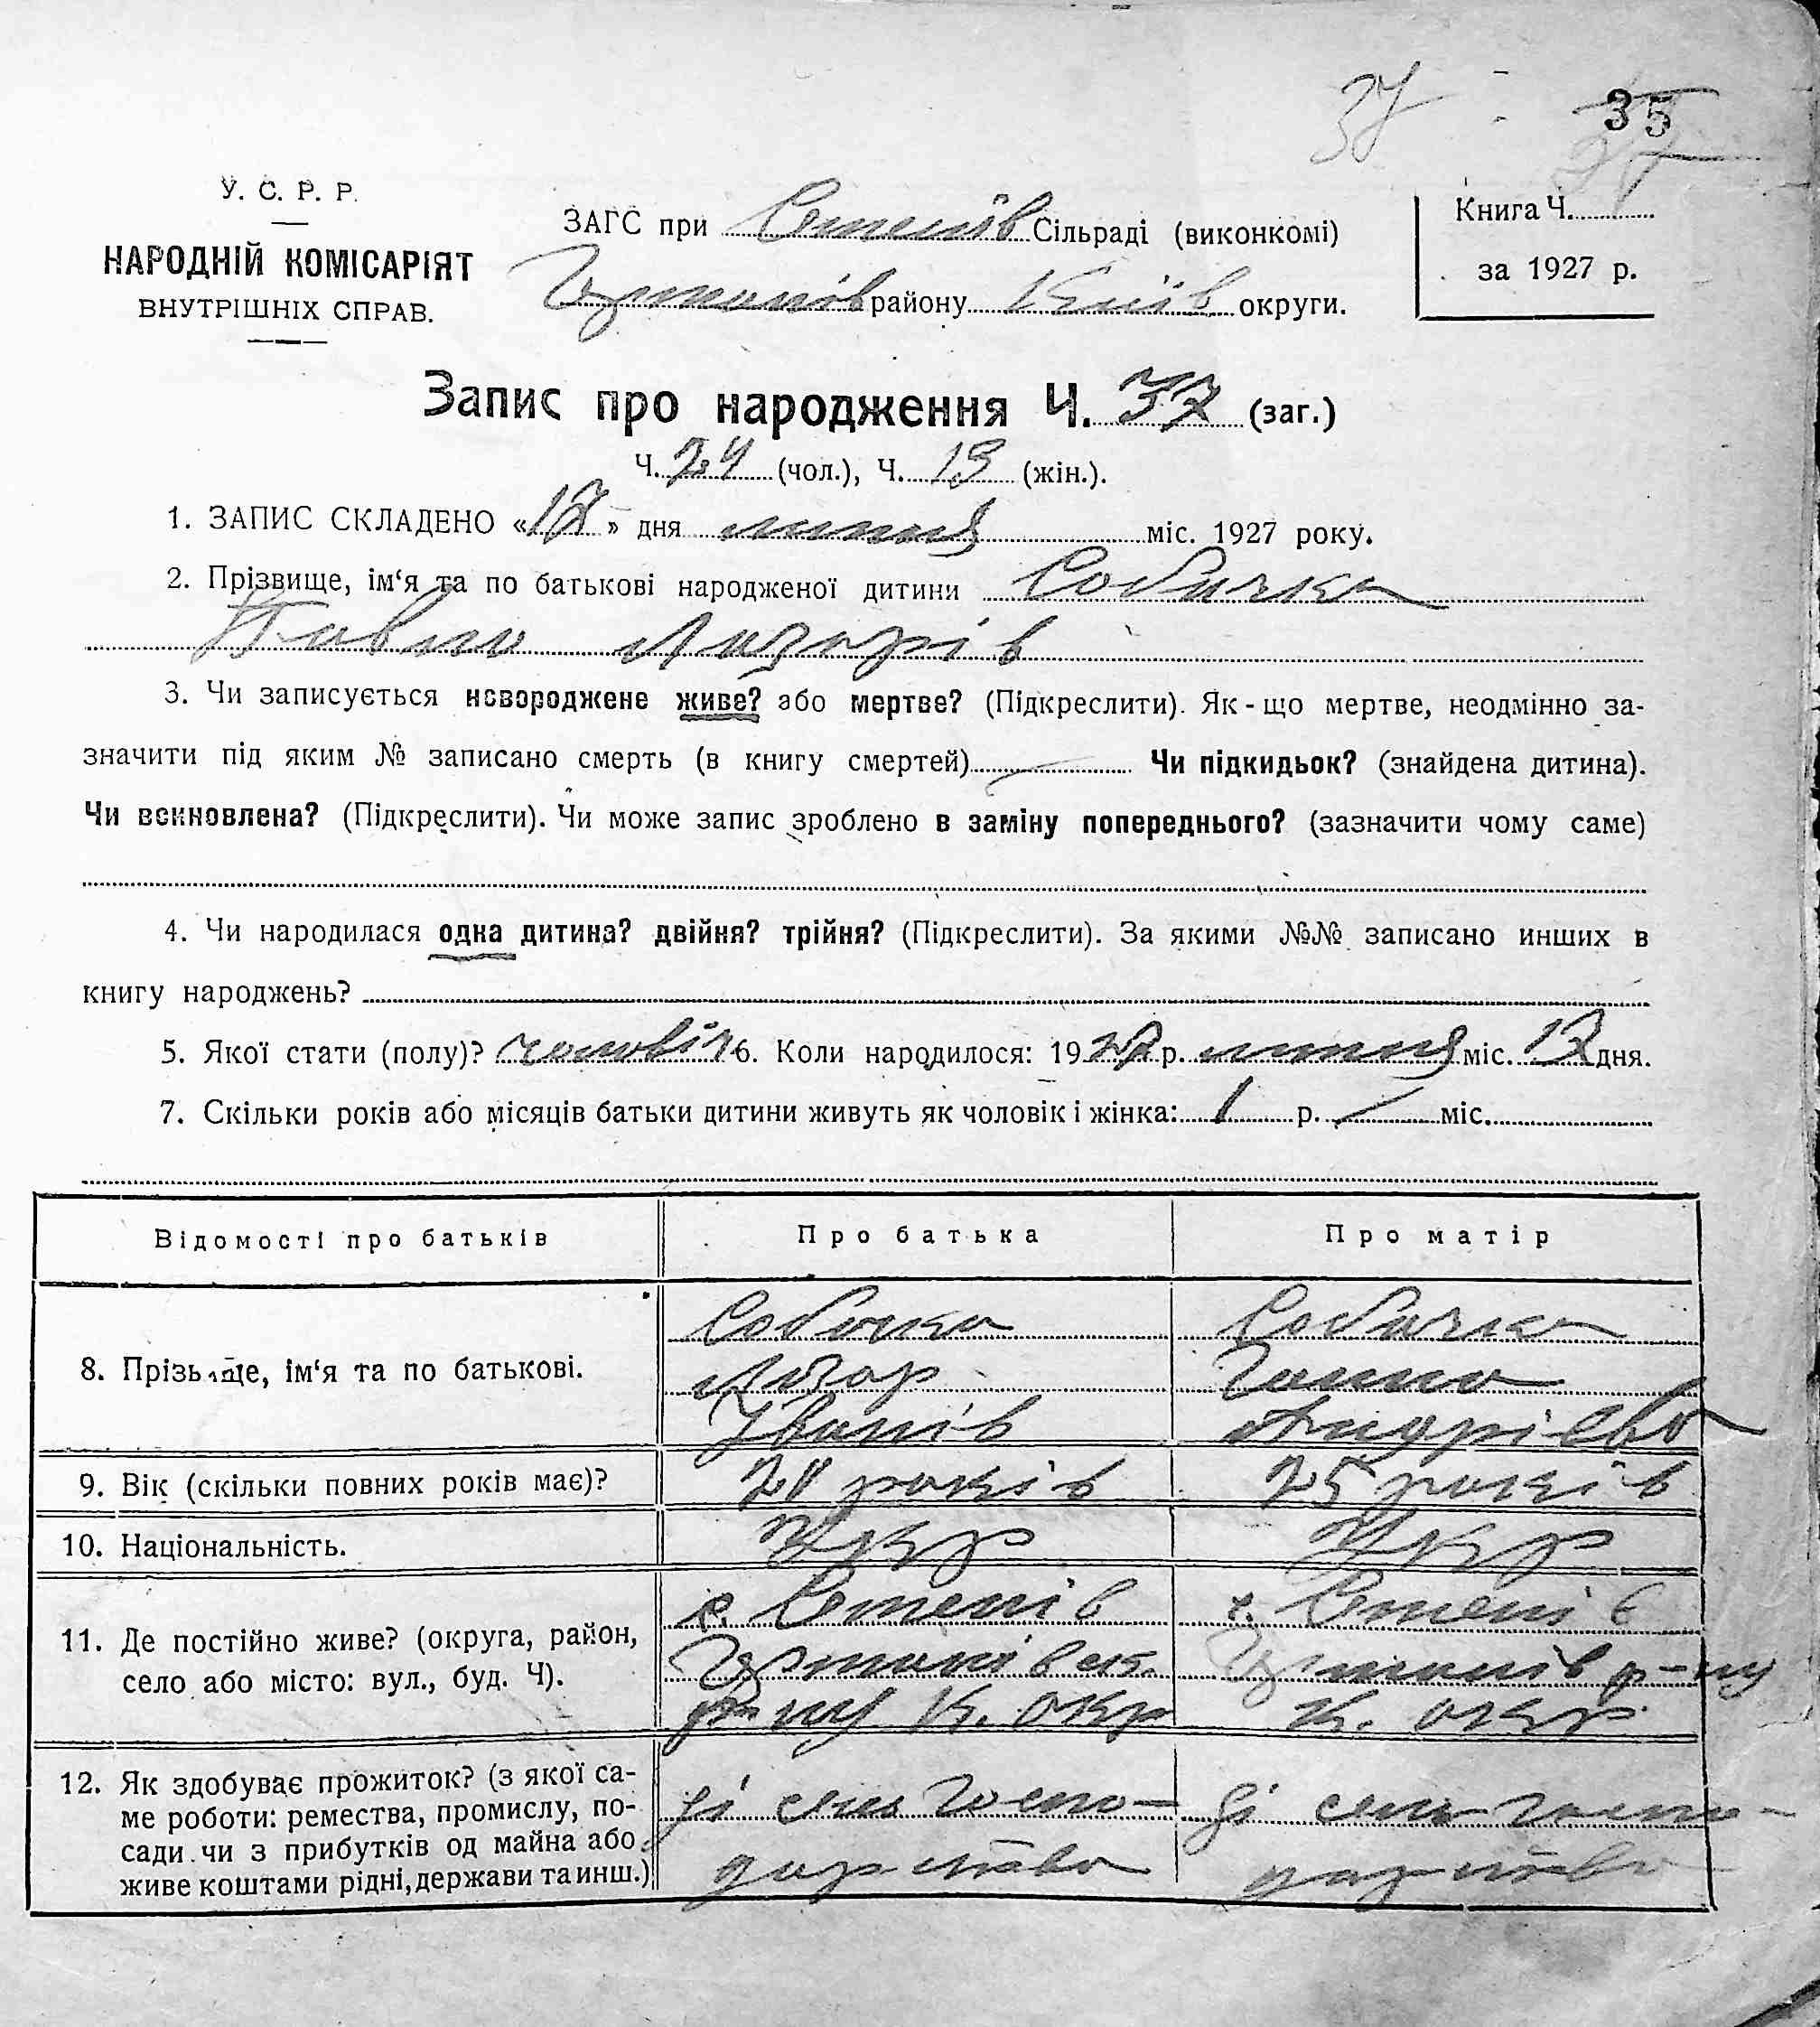 37
35
У. С. Р. Р.
НАРОДНІЙ КОМІСАРІЯТ
ВНУТРІШНІХ СПРАВ.
ЗАГС при Стенів Сільраді (виконкомі)
району Київ округи.
Книга Ч.
за 1927 р.
Запис про народження Ч. 37 (заг.)
Ч. 24 (чол.), Ч. 13 (жін.).
1. ЗАПИС СКЛАДЕНО «17» дня липня міс. 1927 року.
2. Прізвище, ім‘я та по батькові народженої дитини Собичка
Павло Лазарів
3. Чи записується новороджене живе? або мертве? (Підкреслити). Як-що мертве, неодмінно за-
значити під яким № записано смерть (в книгу смертей) Чи підкидьок? (знайдена дитина).
Чи всиновлена? (Підкреслити). Чи може запис зроблено в заміну попереднього? (зазначити чому саме)
4. Чи народилася одна дитина? двійня? трійня? (Підкреслити). За якими №№ записано инших в
книгу народжень?
5. Якої стати (полу)? чоловіч 6. Коли народилося: 1927 р. липня міс. 17 дня.
7. Скільки років або місяців батьки дитини живуть як чоловік і жінка: 1 р. — міс.
Відомості про батьків Про батька Про матір
8. Прізвище, ім‘я та по батькові.
Собичка Собичка
Лазар Ганна
Іванів Андрієва
9. Вік (скільки повних років має)? років 25 років
10. Національність. Укр Укр
11. Де постійно живе? (округа, район,
село або місто: вул., буд. Ч).
с. Стенів с. Стенів
р-ну К. окр р-ну
К. окр
12. Як здобуває прожиток? (з якої са-
ме роботи: ремества, промислу, по-
сади чи з прибутків од майна або
живе коштами рідні, держави та инш.)
сель госпо- сель госпо-
дарство дарство